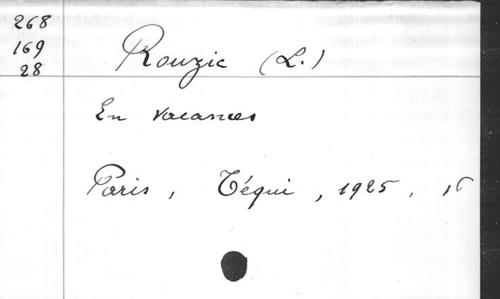 268
169
28
Rouzic (L.)
En vacances
Paris, Téqui, 1925, 16